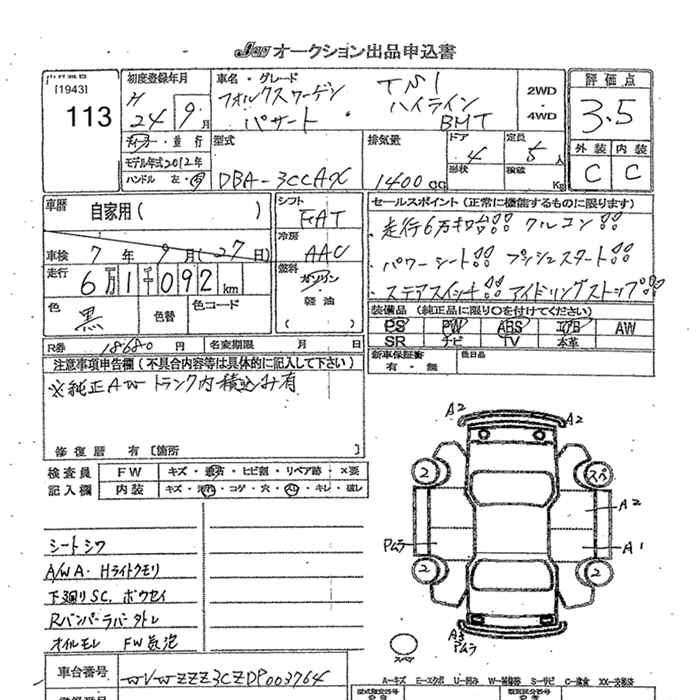 JBU オークション出品申込書
[1943]
113
初度登録年月
H
24 9 月
ディーラー・並行
モデル年式2012年
ハンドル 左・右
車名・グレード
フォルクスワーゲン TSI
パサート ハイライン
BMT
2WD
・
4WD
型式
DBA-3CCAX
排気量
1400 cc
ドア
4
形状
定員
5 人
積載
Kg
評価点
3.5
外装 内装
C C
車歴
自家用( )
車検 7 年 9 月(27日)
走行 6万1千092 km
色 黒 色替 色コード
シフト
FAT
冷房
AAC
燃料
ガソリン
軽油
( )
セールスポイント(正常に機能するものに限ります)
・走行6万キロ台!! クルコン!!
・パワーシート!! プッシュスタート!!
・ステアスイッチ!! アイドリングストップ!!
装備品(純正品に限り○を付けてください)
PS PW ABS エアB AW
SR ナビ TV 本革
R券 18680 円 名変期限 月 日
新車保証書
有・無
後日品
注意事項申告欄(不具合内容等は具体的に記入して下さい)
※純正AWトランク内積込み有
修復歴 有〔箇所 〕
検査員 FW キズ・飛石・ヒビ割・リペア跡・×要
記入欄 内装 キズ・汚れ・コゲ・穴・スレ・キレ・破レ
シートシワ
A/W A・Hライトクモリ
下廻りSC、ボウセイ
Rバンパーラバータレ
オイルモレ FW気泡
A2 A2
2 スペ
A2
Pムラ A1
2 2
A3
Pムラ
スペア
車台番号 WVWZZZ3CZDP003764
A―キズ E―エクボ U―凹み W―補修跡 S―サビ C―腐食 XX―交換済